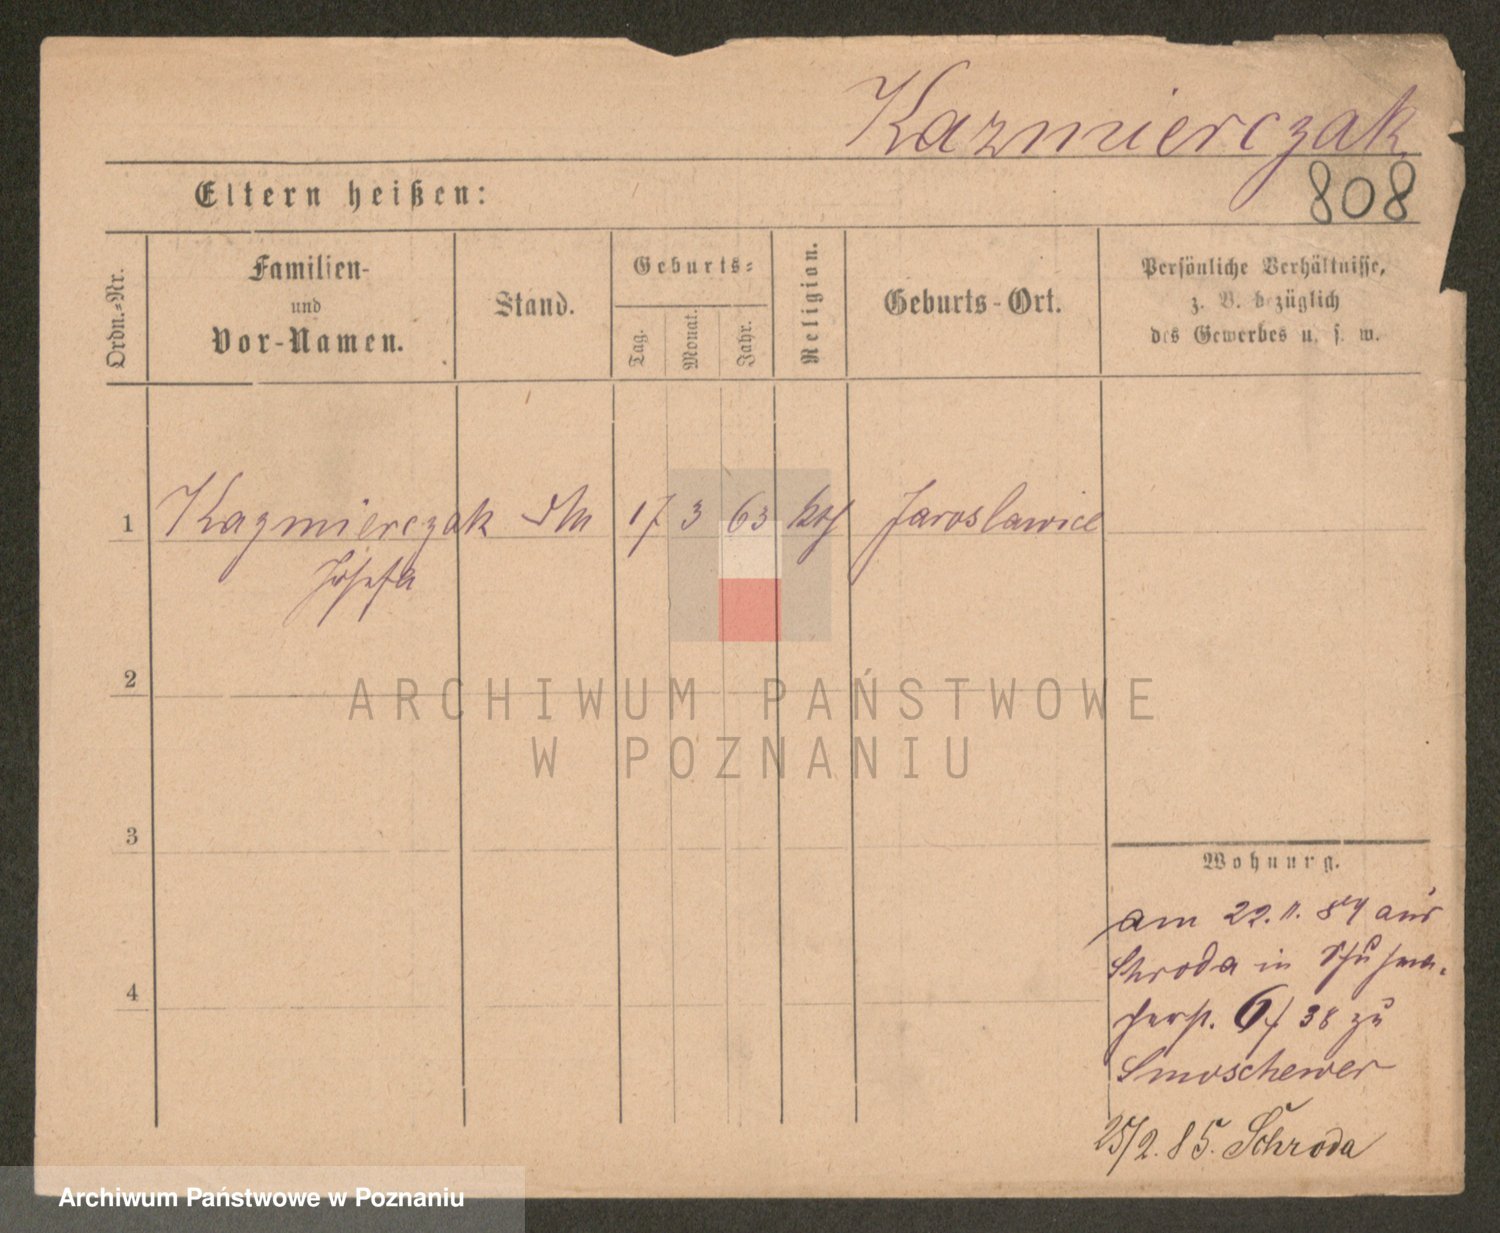 Kazmierczak
808
Eltern heißen:
Ordn.-Nr.
Familien-
und
Vor-Namen.
Stand.
Geburts-
Tag.
Monat.
Jahr.
Religion.
Geburts-Ort.
Persönliche Verhältnisse,
z. B. bezüglich
des Gewerbes u. s. w.
1 Kazmierczak 17 3 63 Jaroslawice
Josefa
2
3
4
ARCHIWUM PAŃSTWOWE
W POZNANIU
Wohnung.
am 22. 11. 84 aus
Schroda in
38 zu
Smoschewer
25/2. 85. Schroda
Archiwum Państwowe w Poznaniu